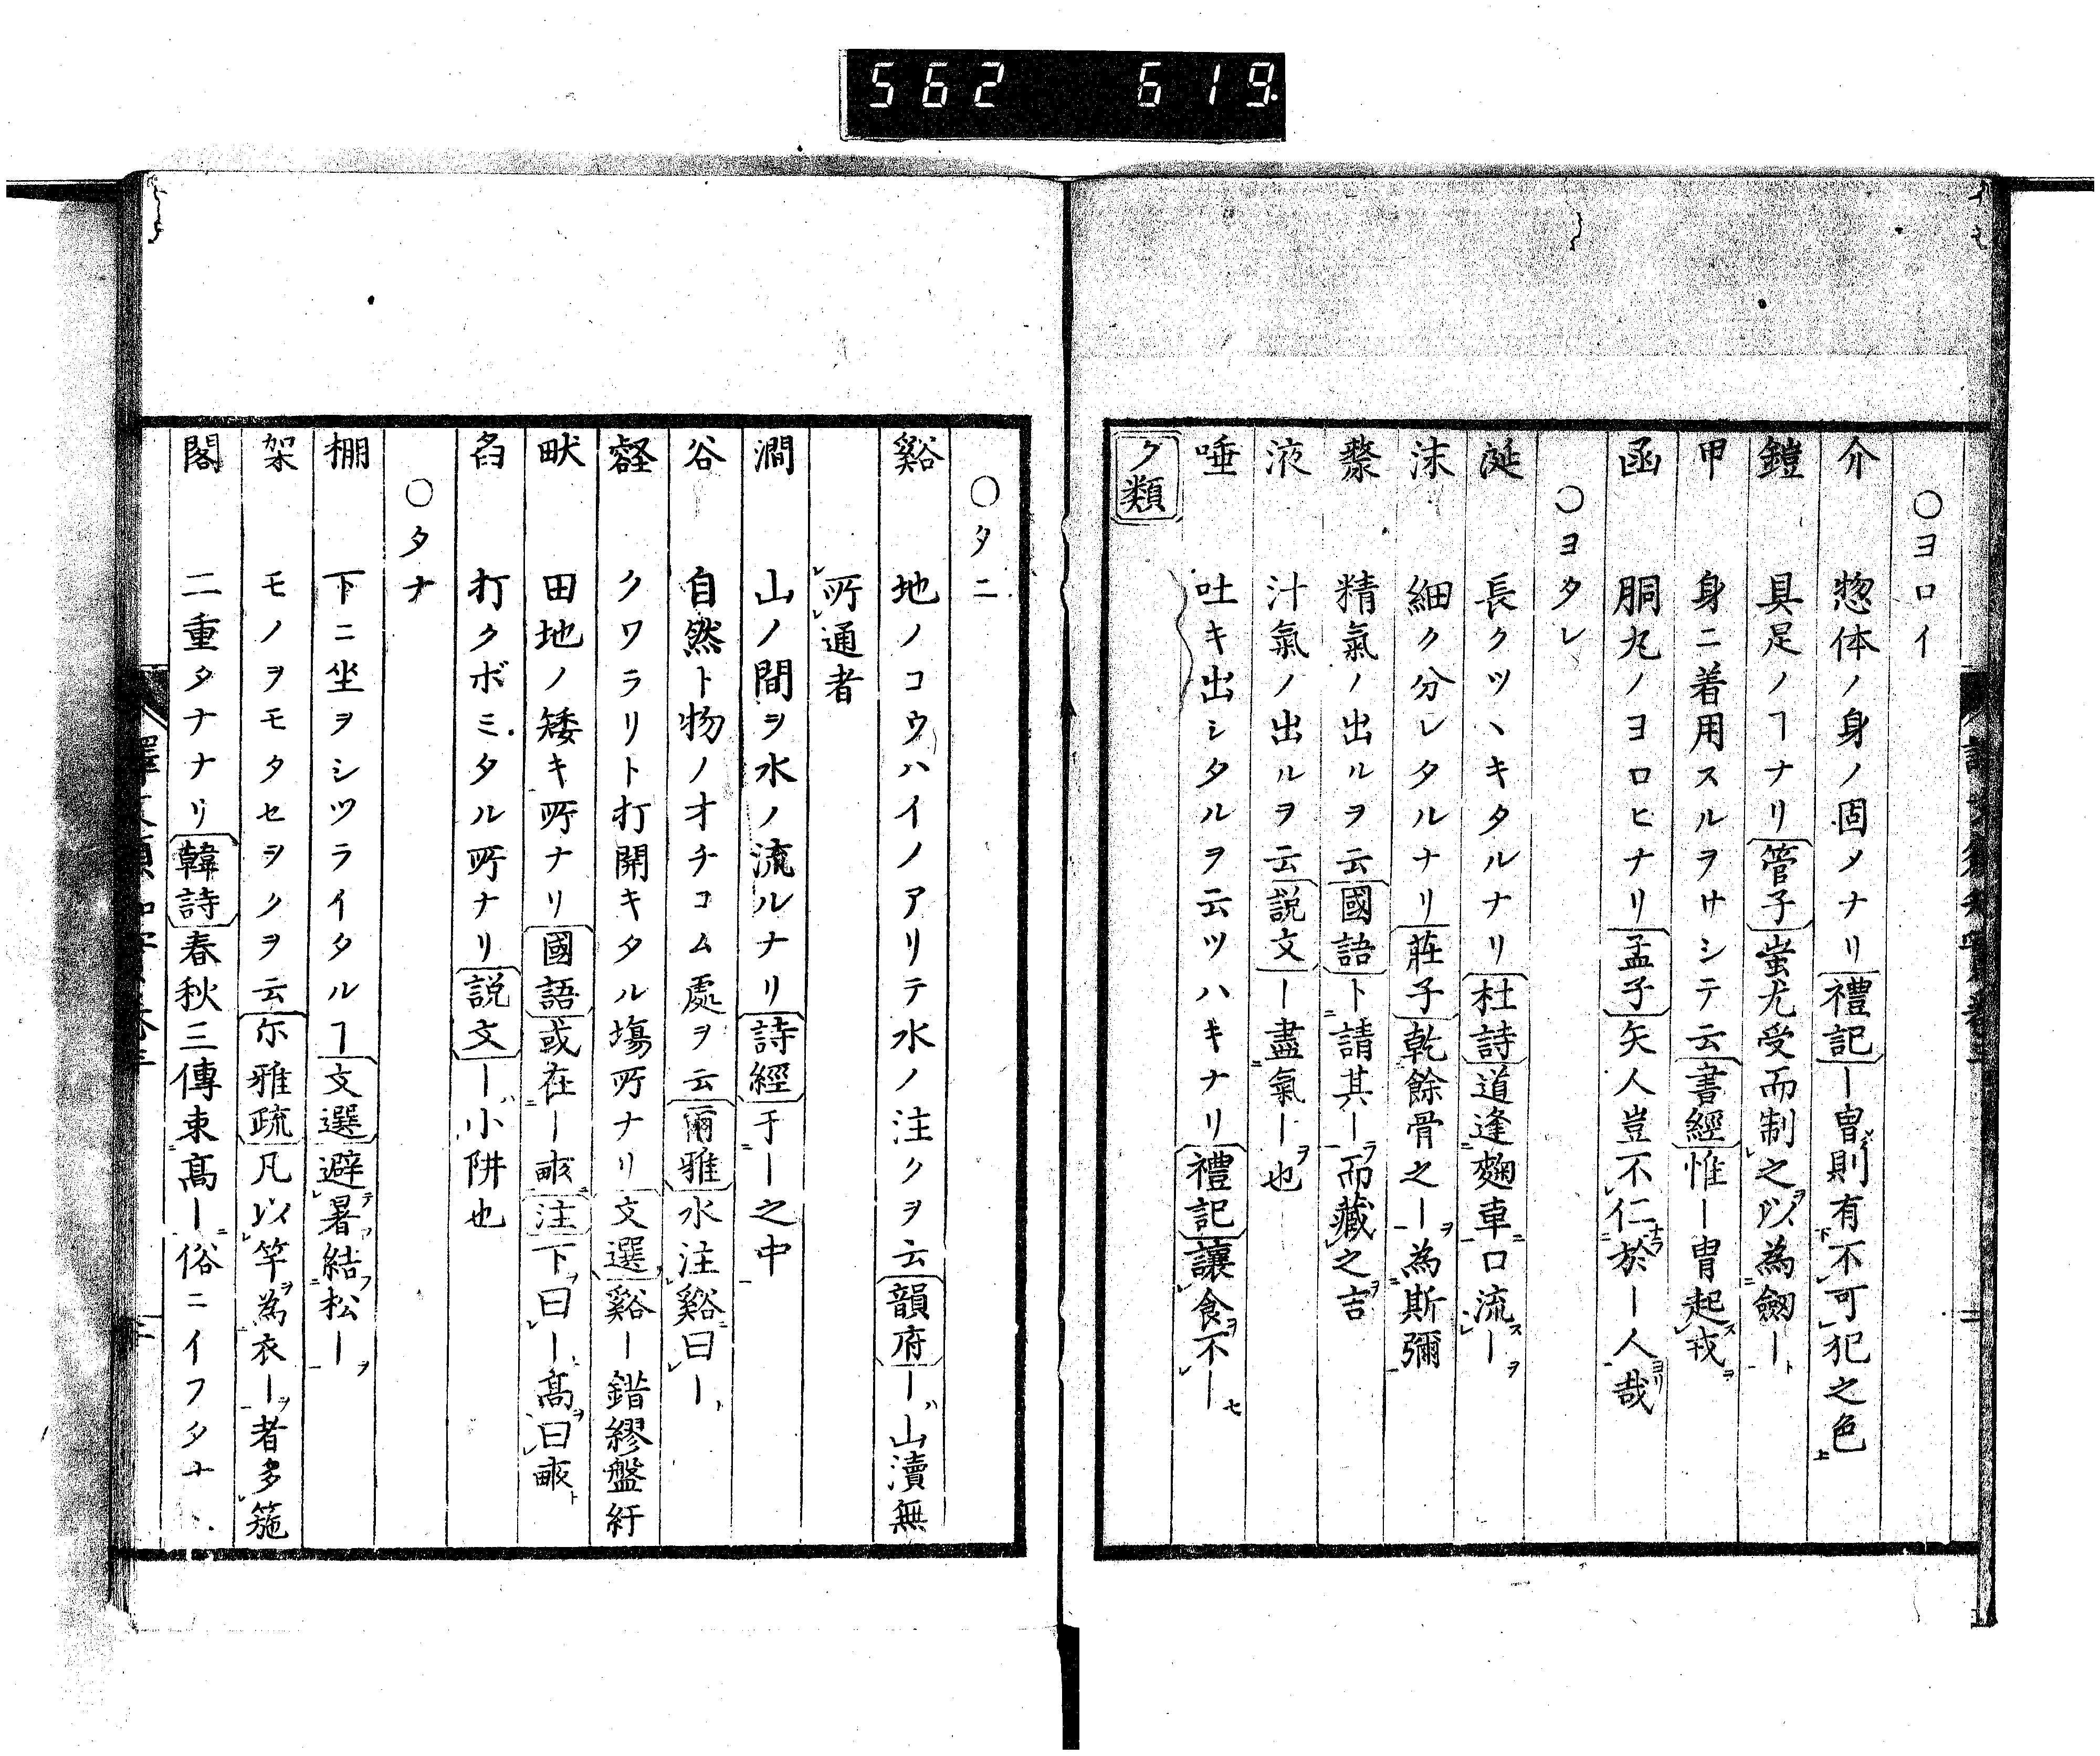 562 619
○ヨロイ
介 惣体ノ身ノ固メナリ禮記ー冑則有不可犯之色
鎧 具足ノヿナリ管子蚩尤受而制之以為劒ー
甲 身ニ着用スルヲサシテ云書經惟ー冑起戎
函 胴丸ノヨロヒナリ孟子矢人豈不仁於ー人哉
○ヨタレ
涎 長クツヽキタルナリ杜詩道逢麴車口流ー
沫 細ク分レタルナリ莊子乾餘骨之ー為斯彌
漦 精氣ノ出ルヲ云國語卜請其ー而藏之吉
液 汁氣ノ出ルヲ云説文ー盡氣ー也
唾 吐キ出シタルヲ云ツハキナリ禮記讓食不ー
ク類
○タニ
谿 地ノコウハイノアリテ水ノ注クヲ云韻府ー山瀆無
所通者
澗 山ノ間ヲ水ノ流ルナリ詩經于ー之中
谷 自然ト物ノオチコム處ヲ云爾雅水注谿曰ー
壑 クワラリト打開キタル塲所ナリ文選谿ー錯繆盤紆
畎 田地ノ矮キ所ナリ國語或在ー畝注下曰ー髙曰畝
臽 打クボミタル所ナリ説文ー小阱也
○タナ
棚 下ニ坐ヲシツラライタルヿ文選避暑結松ー
架 モノヲモタセヲクヲ云尓雅疏凡以竿為衣ー者多箷
閣 二重タナナリ韓詩春秋三傳束髙ー俗ニイフタナ